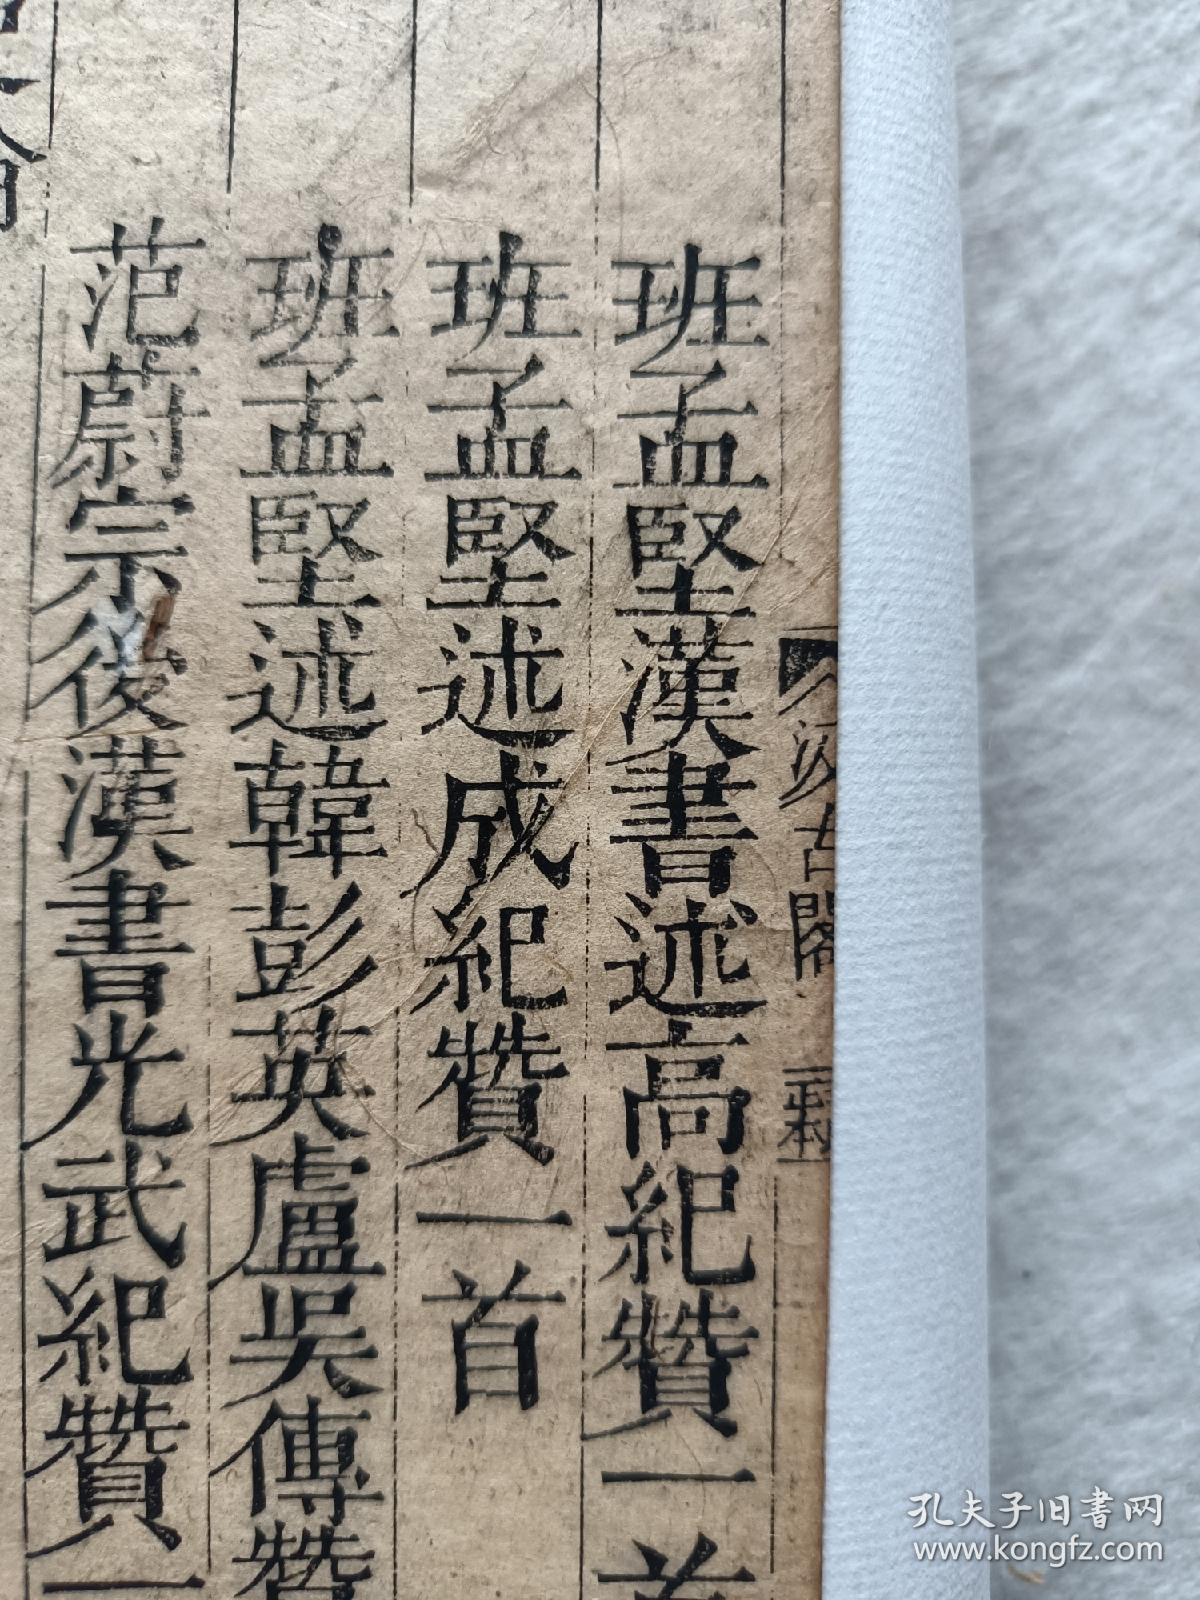 汲古閣
班孟堅漢書述高紀贊一首
班孟堅述成紀贊一首
班孟堅述韓彭英盧吳傳贊
范蔚宗後漢書光武紀贊一
孔夫子旧书网
www.kongfz.com